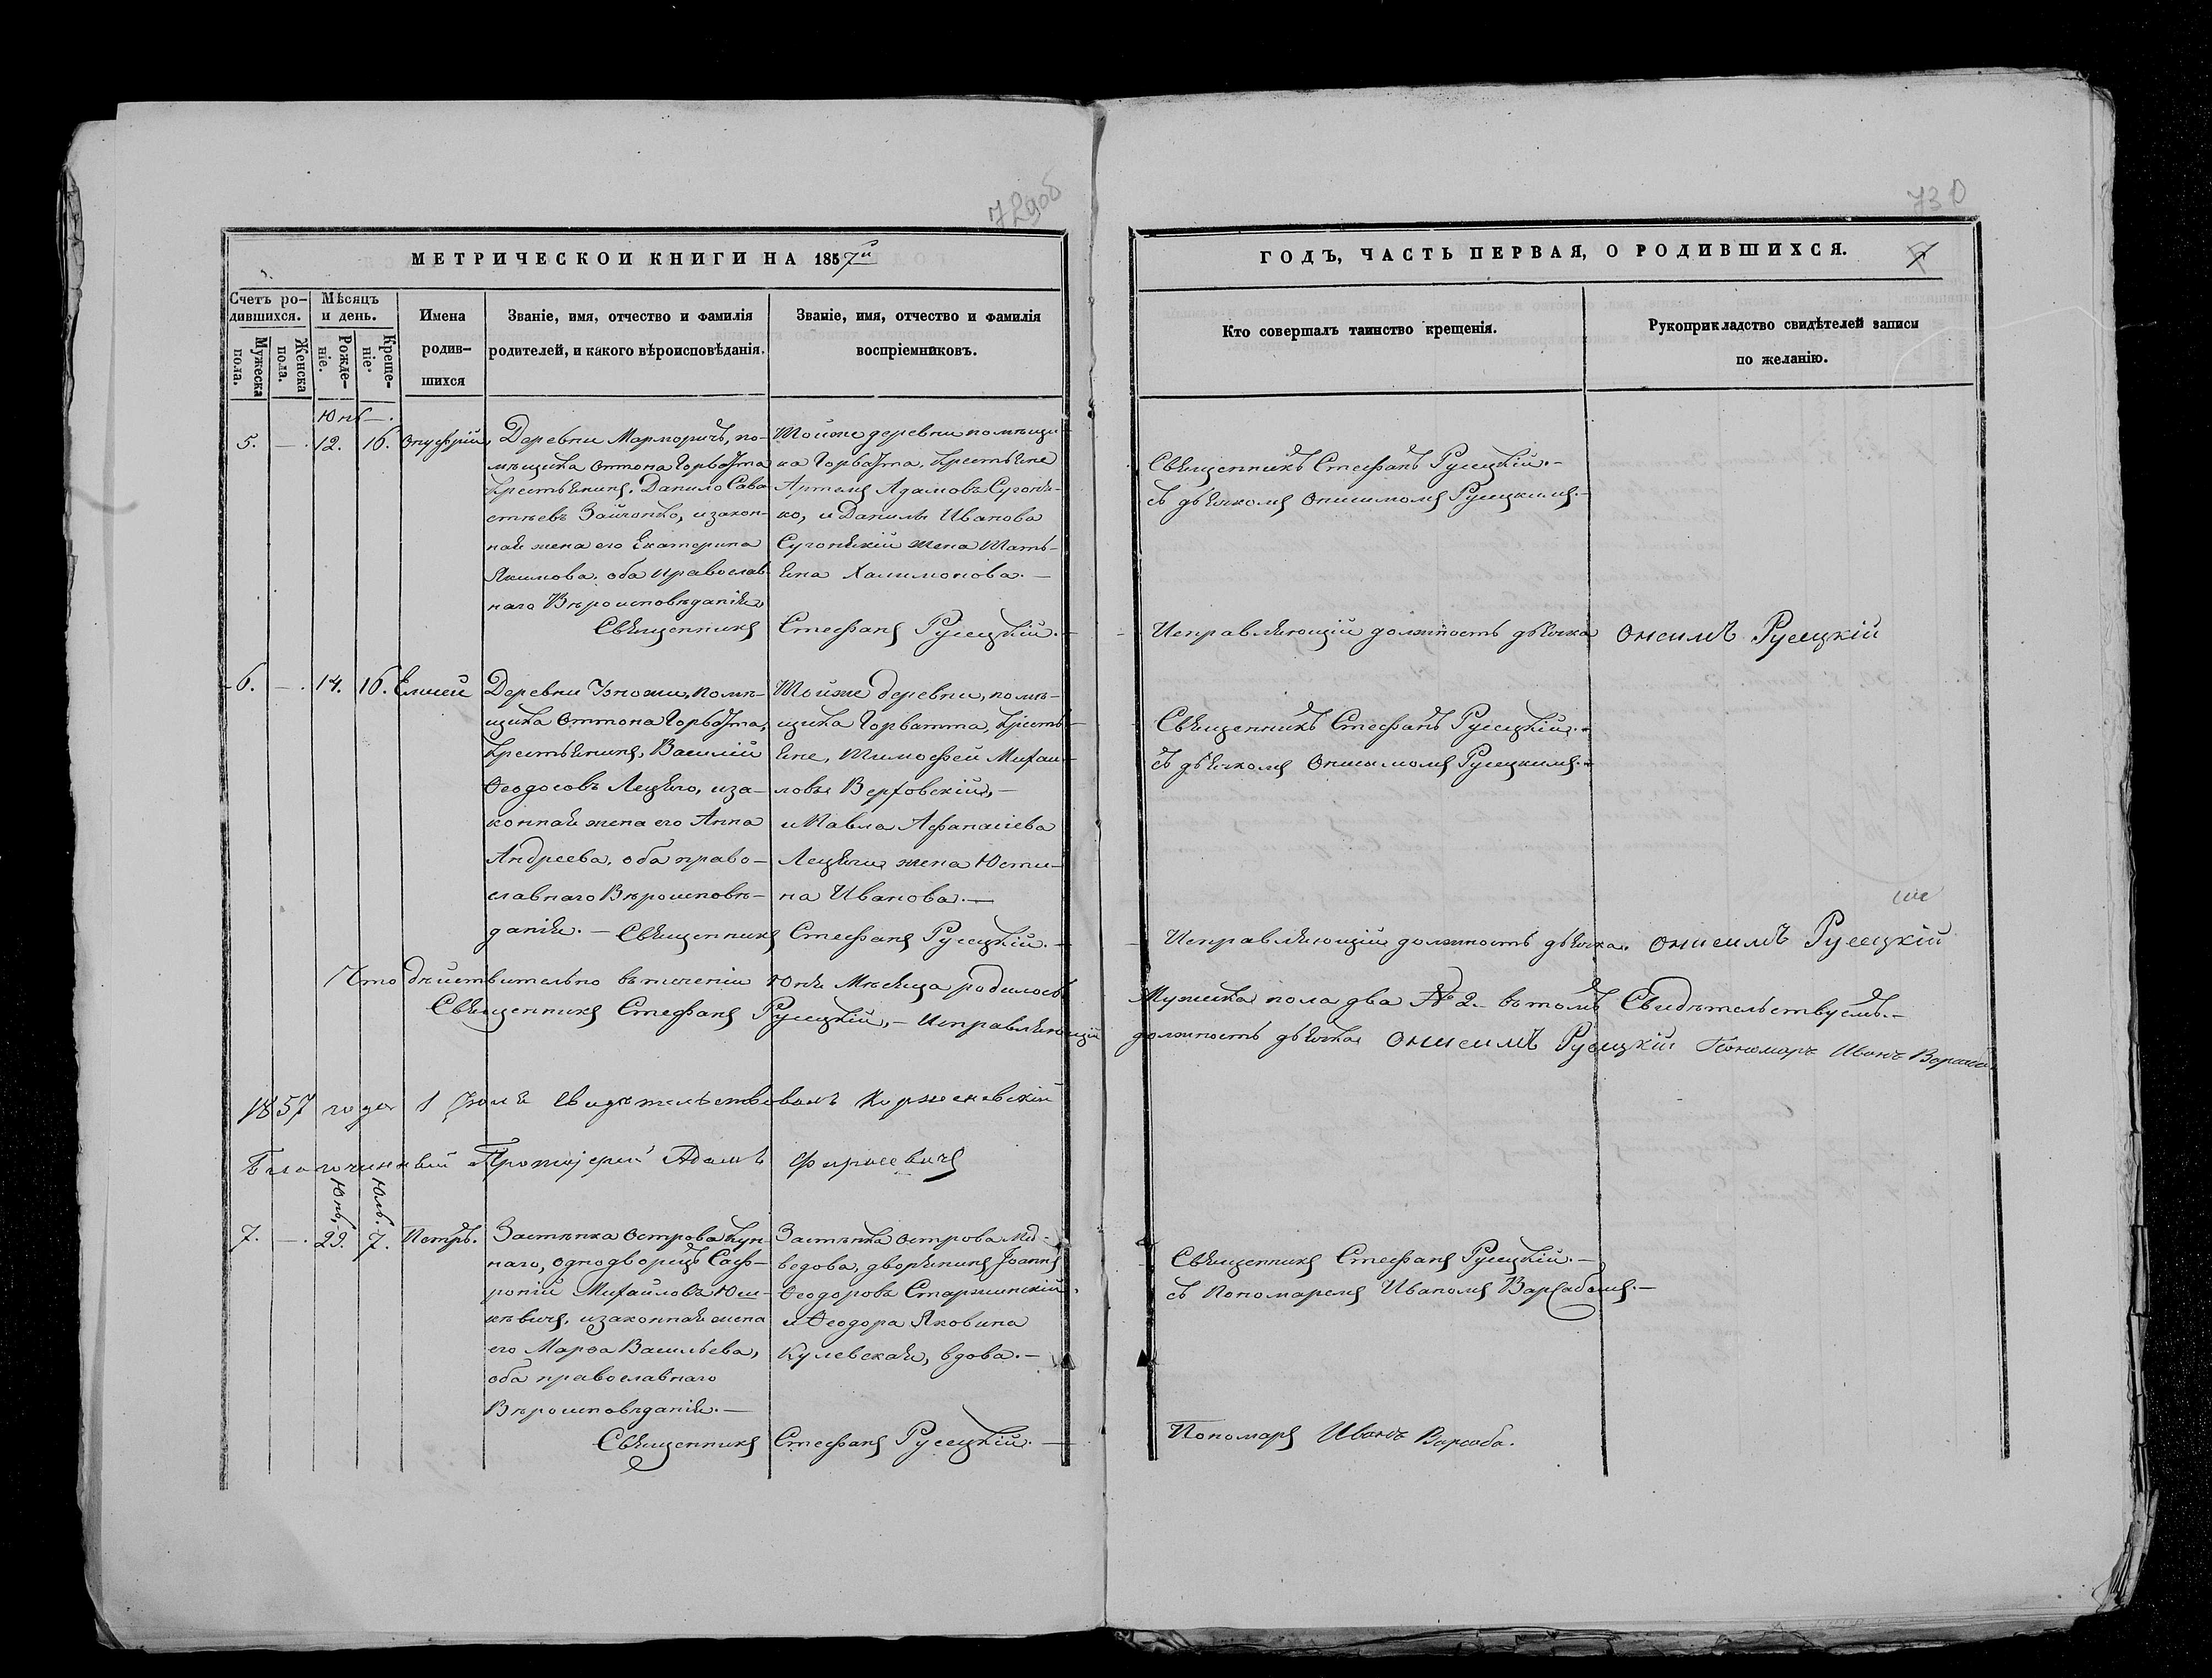 729об
МЕТРИЧЕСКОИ КНИГИ НА 1857й
Счетъ ро-
дившихся.
Мѣсяцъ
и день.
Имена
родив-
шихся
Званіе, имя, отчество и фамилія
родителей, и какого вѣроисповѣданія.
Званіе, имя, отчество и фамилія
воспріемниковъ.
Мужеска
пола.
Женска
пола.
Рожде-
ніе.
Креще-
ніе.
Юнь —.
5. — . 12. 16. Онуфрій,
Деревни Марморичъ, по-
мѣщика Оттона Горватта
крестьянинъ, Данило Сава-
стѣевъ Зайчонко, и закон-
ная жена его Екатерина
Якимова. оба православ
наго Вѣроисповѣданія
Тойже деревни помѣщи-
ка Горватта, крестьяне
Артемъ Адамовъ Сугоня-
ко, и Данилы Иванова
Сугонякій жена Тать-
яна Халимонова. —
Священникъ Стефанъ Русецкій. —
6. — . 14. 16. Елисей
Деревни Узножи, помѣ-
щика Оттона Горватта,
крестьянинъ, Василій
Ѳеодосовъ Лецяго, и за-
конная жена его Анна
Андреева, оба право-
славнаго Вѣроисповѣ-
данія. —
Тойже деревни, помѣ-
щика Горватта, кресть-
яне, Тимофей Михаи-
ловъ Верховскій, —
и Павла Афанасіева
Лецяги жена Юсти-
на Иванова. —
Священникъ Стефанъ Русецкій. —
Что дѣйствительно въ теченіи Юня Мѣсяца родилось
Священникъ Стефанъ Русецкій, — Исправляющій
1857 года 1 Іюля Свидѣтельствовалъ
Благочинный Протоіерей Адамъ
Юнь. Юль.
7. — . 29. 7. Петръ.
Застѣнка Острова Кун-
наго, однодворецъ Саф-
роній Михайловъ Юш-
кѣвичъ, и законная жена
его Марѳа Васильева,
оба православнаго
Вѣроисповѣданія. —
Застѣнка Острова Мед-
ведова, дворянинъ Іоаннъ
Ѳеодоровъ Старжинскій
и Ѳеодора Яковина
Кулевская, вдова. —
Священникъ Стефанъ Русецкій. —
730
ГОДЪ, ЧАСТЬ ПЕРВАЯ, О РОДИВШИХСЯ.
Кто совершалъ таинство крещенія.
Рукоприкладство свидѣтелей записи
по желанію.
Священникъ Стефанъ Русецкій. —
съ дьячкомъ Онисимомъ Русецкимъ. —
Исправляющій должность дьячка Онсимъ Русецкій
Священникъ Стефанъ Русецкій. —
съ дьячкомъ Онисимомъ Русецкимъ. —
Исправляющій должность дьячка. Онисимъ Русецкій
Мужска пола два № 2. — въ томъ Свидѣтельствуемъ. —
должность дьячка Онисимъ Русецкій Пономарь Иванъ Варсаба
Священникъ Стефанъ Русецкій. —
съ Пономаремъ Иваномъ Варсабомъ. —
Пономарь Иванъ Варсаба.